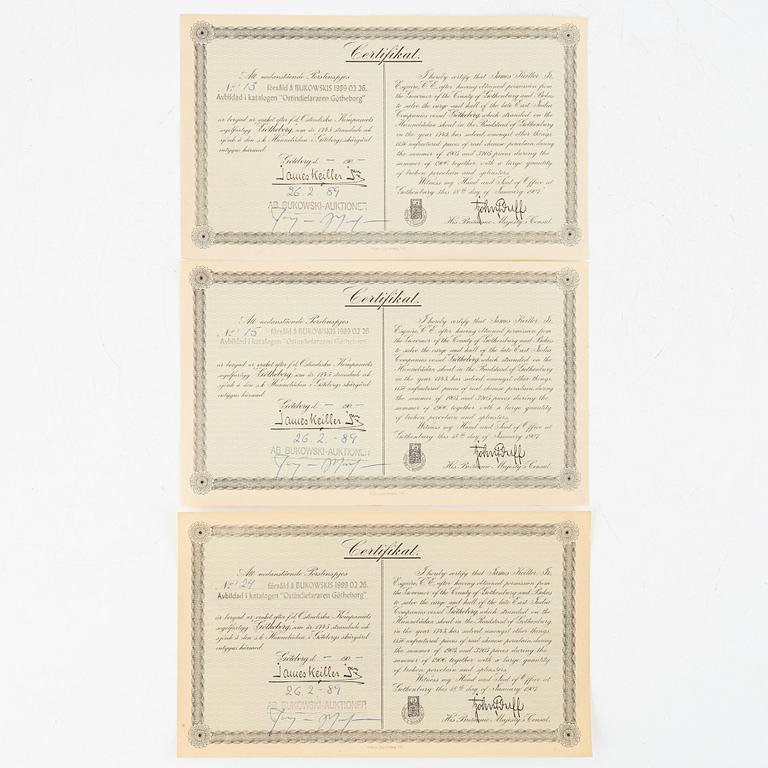 Certifikat.
Att nedanstående Porslinspjes
No 13 försåld å BUKOWSKIS 1989 02 26.
Avbildad i katalogen "Ostindiefararen Götheborg"
är bergad ur vraket efter f.d. Ostindiska Kompaniets
segelfartyg Götheborg, som år 1745 strandade och
sjönk å den s.k. Hunnebådan i Göteborgs skärgård
intygas härmed.
Göteborg d. — 190 —
James Keiller Jr
26.2.-89
AB BUKOWSKI-AUKTIONER
I hereby certify that James Keiller, Jr,
Esquire, C.E. after having obtained permission from
the Governor of the County of Gothenburg and Bohus
to salve the cargo and hull of the late East India
Companies vessel Götheborg which stranded on the
Hunnebådan shoal in the Roadstead of Gothenburg
in the year 1745 has salved, amongst other things,
unfractured pieces of real chinese porcelain, during
the summer of 1905 and pieces during the
summer of 1906, together with a large quantity
of broken porcelain and splinters.
Witness my Hand and Seal of Office at
Gothenburg this 18th day of January 1907.
John Duff
His Britannic Majesty's Consul.
Certifikat.
Att nedanstående Porslinspjes
No 15 försåld å BUKOWSKIS 1989 02 26.
Avbildad i katalogen "Ostindiefararen Götheborg"
är bergad ur vraket efter f.d. Ostindiska Kompaniets
segelfartyg Götheborg, som år 1745 strandade och
sjönk å den s.k. Hunnebådan i Göteborgs skärgård
intygas härmed.
Göteborg d. — 190 —
James Keiller Jr
26.2.-89
AB BUKOWSKI-AUKTIONER
I hereby certify that James Keiller, Jr,
Esquire, C.E. after having obtained permission from
the Governor of the County of Gothenburg and Bohus
to salve the cargo and hull of the late East India
Companies vessel Götheborg which stranded on the
Hunnebådan shoal in the Roadstead of Gothenburg
in the year 1745 has salved, amongst other things,
unfractured pieces of real chinese porcelain, during
the summer of 1905 and pieces during the
summer of 1906, together with a large quantity
of broken porcelain and splinters.
Witness my Hand and Seal of Office at
Gothenburg this 18th day of January 1907.
John Duff
His Britannic Majesty's Consul.
Certifikat.
Att nedanstående Porslinspjes
No 24 försåld å BUKOWSKIS 1989 02 26.
Avbildad i katalogen "Ostindiefararen Götheborg"
är bergad ur vraket efter f.d. Ostindiska Kompaniets
segelfartyg Götheborg, som år 1745 strandade och
sjönk å den s.k. Hunnebådan i Göteborgs skärgård
intygas härmed.
Göteborg d. — 190 —
James Keiller Jr
26.2.-89
AB BUKOWSKI-AUKTIONER
I hereby certify that James Keiller, Jr,
Esquire, C.E. after having obtained permission from
the Governor of the County of Gothenburg and Bohus
to salve the cargo and hull of the late East India
Companies vessel Götheborg, which stranded on the
Hunnebådan shoal in the Roadstead of Gothenburg
in the year 1745 has salved, amongst other things,
unfractured pieces of real chinese porcelain, during
the summer of 1905 and pieces during the
summer of 1906, together with a large quantity
of broken porcelain and splinters.
Witness my Hand and Seal of Office at
Gothenburg this 18th day of January 1907.
John Duff
His Britannic Majesty's Consul.